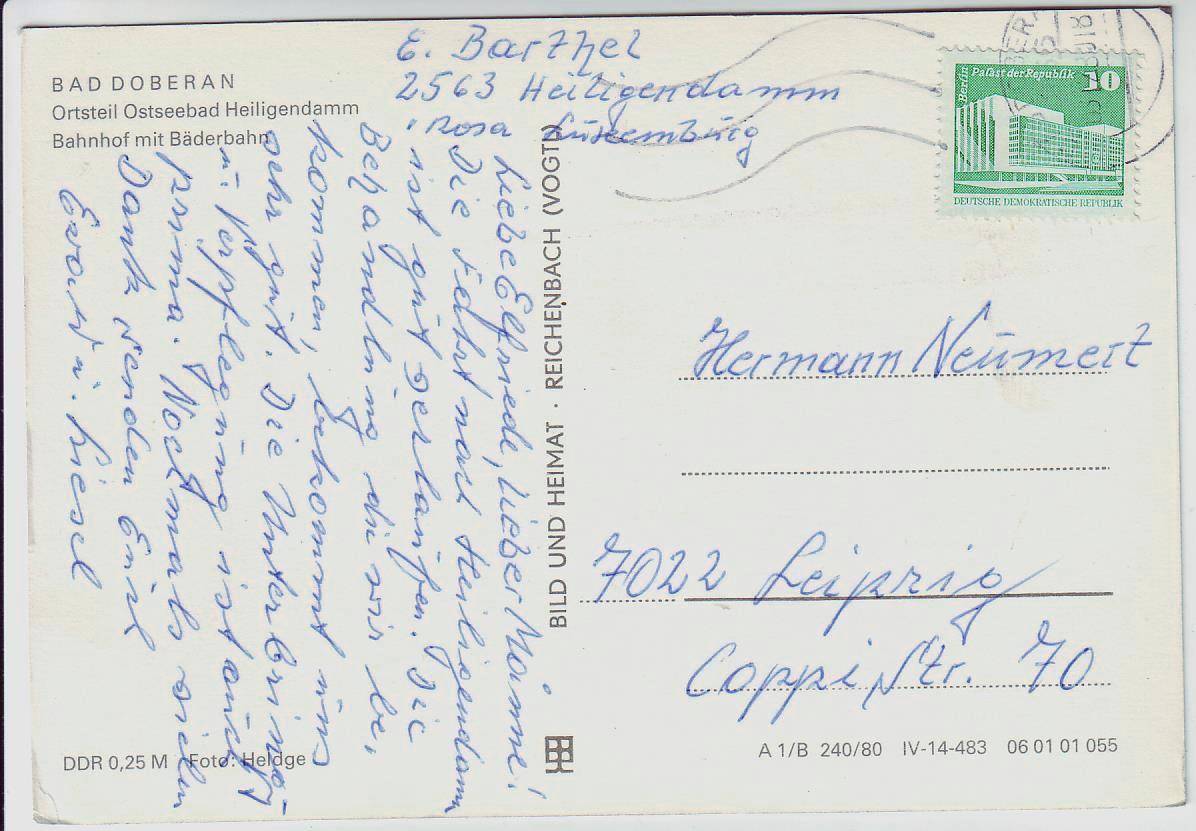 E. Barthel
2563 Heiligendamm
Rosa Luxemburg
BAD DOBERAN
Ortsteil Ostseebad Heiligendamm
Bahnhof mit Bäderbahn
Liebe Elfriede, lieber Manne!
Die Fahrt nach Heiligendamm
ist gut verlaufen. Die
Behandlung die wir be-
kommen, bekommt uns
sehr gut. Die Unterbring-
u. Verpflegung ist auch
prima. Nochmals vielen
Dank senden Euch
Ewald u. Liesel
BILD UND HEIMAT · REICHENBACH (VOGTL)
Berlin
Palast der Republik
10
DEUTSCHE DEMOKRATISCHE REPUBLIK
Hermann Neumert
7022 Leipzig
Coppi Str. 70
DDR 0,25 M Foto: Heldge
A 1/B 240/80 IV-14-483 06 01 01 055